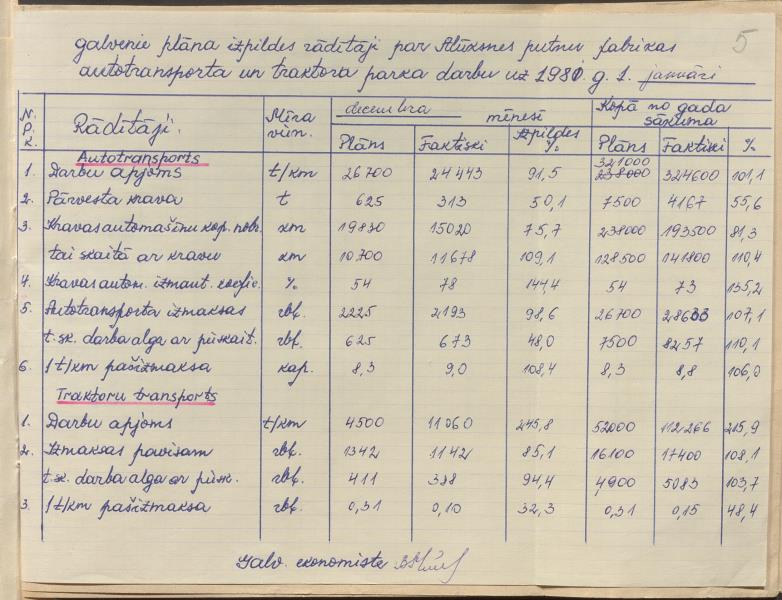 5
galvenie plāna izpildes rādītāji par Alūksnes putnu fabrikas
autotransporta un traktora parka darbu uz 1981. g. 1. janvāri
N. P. K. Rādītāji. Mēra vien. decembra mēnesī Kopā no gada sākuma
Plāns Faktiski Izpildes % Plāns Faktiski %
Autotransports
321000
1. Darbu apjoms t/km 26700 24443 91,5 238000 324600 101,1
2. Pārvesta krava t 625 313 50,1 7500 4167 55,6
3. Kravas automašīnu kop. nobr. km 19830 15020 75,7 238000 193500 81,3
tai skaitā ar kravu km 10700 11678 109,1 128500 141800 110,4
4. Kravas autom. izmant. koefic. % 54 78 144,4 54 73 135,2
5. Autotransporta izmaksas rbļ. 2225 2193 98,6 26700 28633 107,1
t.sk. darba alga ar pieskait. rbļ. 625 673 48,0 7500 8257 110,1
6. 1 t/km pašizmaksa kap. 8,3 9,0 108,4 8,3 8,8 106,0
Traktoru transports
1. Darbu apjoms t/km 4500 11060 245,8 52000 112266 215,9
2. Izmaksas pavisam rbļ. 1342 1142 85,1 16100 17400 108,1
t.sk. darba alga ar piesk. rbļ. 411 388 94,4 4900 5083 103,7
3. 1 t/km pašizmaksa rbļ. 0,31 0,10 32,3 0,31 0,15 48,4
Galv. ekonomiste